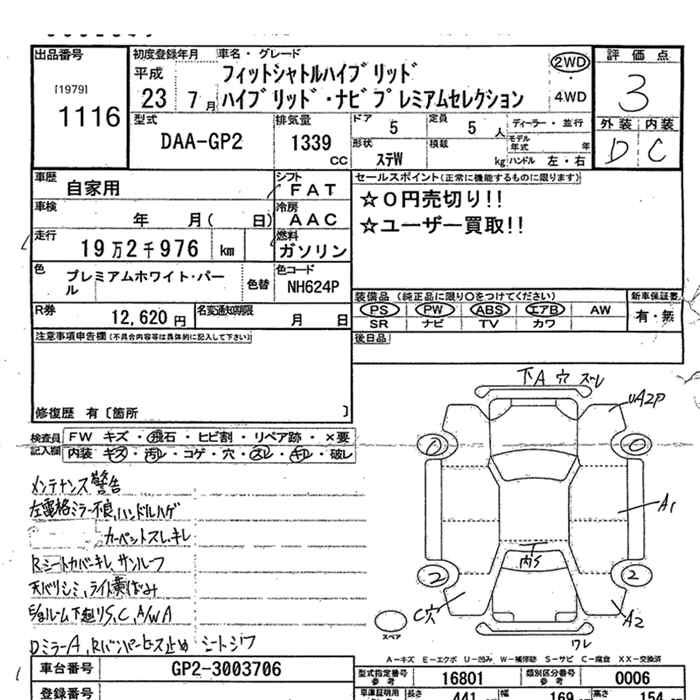 出品番号
[1979]
1116
初度登録年月
平成
23 7 月
車名・グレード
フィットシャトルハイブリッド
ハイブリッド・ナビプレミアムセレクション
2WD
・
4WD
評価点
3
外装 内装
D C
型式
DAA-GP2
排気量
1339
CC
ドア
5
定員
5 人
ディーラー・並行
形状
ステW
積載
kg
モデル
年式 年
ハンドル 左・右
車歴
自家用
シフト
FAT
車検
年 月( 日)
冷房
AAC
走行
19万2千976 km
燃料
ガソリン
色
プレミアムホワイト・パー
ル
色替
色コード
NH624P
R券
12,620 円
名変通知期限
月 日
セールスポイント(正常に機能するものに限ります)
☆0円売切り!!
☆ユーザー買取!!
装備品 (純正品に限り○をつけてください)
PS PW ABS エアB AW
SR ナビ TV カワ
新車保証書
有・無
後日品
注意事項申告欄(不具合内容等は具体的に記入して下さい)
修復歴 有〔箇所 〕
検査員
記入欄
FW キズ・飛石・ヒビ割・リペア跡・×要
内装 キズ・汚レ・コゲ・穴・スレ・キレ・破レ
メンテナンス警告
左電格ミラー不良,ハンドルハゲ
カーペットスレキレ
Rシートカバーキレ,サンルーフ
天バリシミ,ライト黄ばみ
下廻りS,C,A/WA
DミラーA,Rバンパービス止め シートシワ
下A 穴 ズレ
UA2P
A1
内S
2
2
C穴
A2
ワレ
スペア
A-キズ E-エクボ U-凹み W-補修跡 S-サビ C-腐食 XX-交換済
車台番号
GP2-3003706
型式指定番号
参考
16801
類別区分番号
参考
0006
登録番号
長さ
441
幅
169
高さ
154